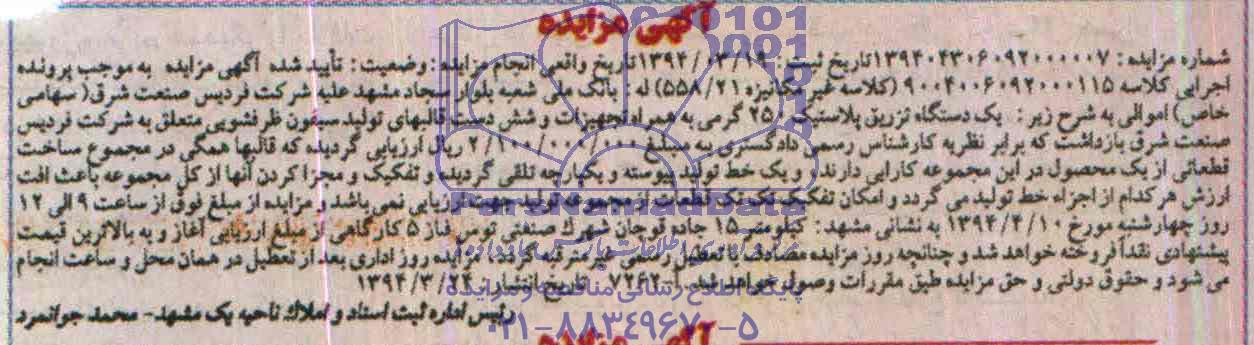 آگهی مزایده
شماره مزایده: ۱۳۹۴۰۴۳۰۶۰۹۲۰۰۰۰۰۷ تاریخ ثبت: ۱۳۹۴/۰۳/۱۹ تاریخ واقعی انجام مزایده: وضعیت: تأیید شده آگهی مزایده به موجب پرونده
اجرایی کلاسه ۹۰۰۴۰۰۶۰۹۲۰۰۰۱۱۵ (کلاسه غیر مکانیزه ۵۵۸/۲۱) له: بانک ملی شعبه بلوار سجاد مشهد علیه شرکت فردیس صنعت شرق (سهامی
خاص) اموالی به شرح زیر: یک دستگاه تزریق پلاستیک ۲۵۰ گرمی به همراه تجهیزات و شش دست قالبهای تولید سیفون ظرفشویی متعلق به شرکت فردیس
صنعت شرق بازداشت که برابر نظریه کارشناس رسمی دادگستری به مبلغ ۲/۱۰۰/۰۰۰/۰۰۰ ریال ارزیابی گردیده که قالبها همگی در مجموع ساخت
قطعاتی از یک محصول در این مجموعه کارایی دارند و یک خط تولید پیوسته و یکپارچه تلقی گردیده و تفکیک و مجزا کردن آنها از کل مجموعه باعث افت
ارزش هر کدام از اجزاء خط تولید می گردد و امکان تفکیک تک تک قطعات از مجموعه تولید جهت ارزیابی نمی باشد و مزایده از مبلغ فوق از ساعت ۹ الی ۱۲
روز چهارشنبه مورخ ۱۳۹۴/۴/۱۰ به نشانی مشهد: کیلومتر ۱۵ جاده قوچان شهرک صنعتی توس فاز ۵ کارگاهی از مبلغ ارزیابی آغاز و به بالاترین قیمت
پیشنهادی نقداً فروخته خواهد شد و چنانچه روز مزایده مصادف با تعطیل رسمی غیرمترقبه گردد مزایده روز اداری بعد از تعطیل در همان محل و ساعت انجام
می شود و حقوق دولتی و حق مزایده طبق مقررات وصول خواهد شد. تاریخ انتشار: ۱۳۹۴/۳/۲۴
رئیس اداره ثبت اسناد و املاک ناحیه یک مشهد - محمد جوانمرد
ParsNamadData
پایگاه اطلاع رسانی مناقصه و مزایده
۰۲۱-۸۸۳۴۹۶۷۰-۵
آگهی مزایده